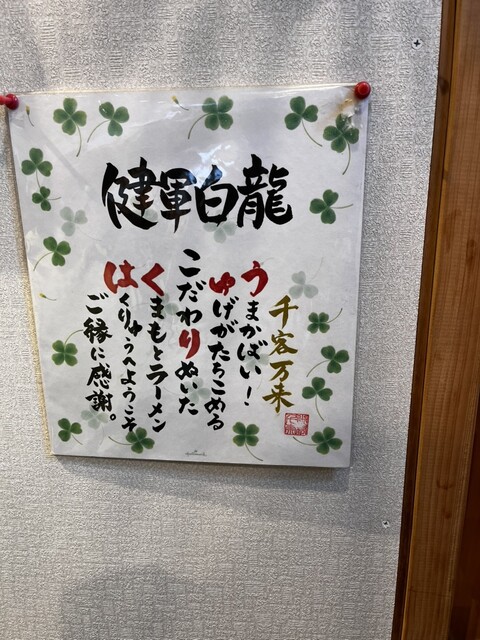 健軍白龍
千客万来
うまかばい!
ゆげがたちこめる
こだわりぬいた
くまもとラーメン
はくりゅうへようこそ
ご縁に感謝。